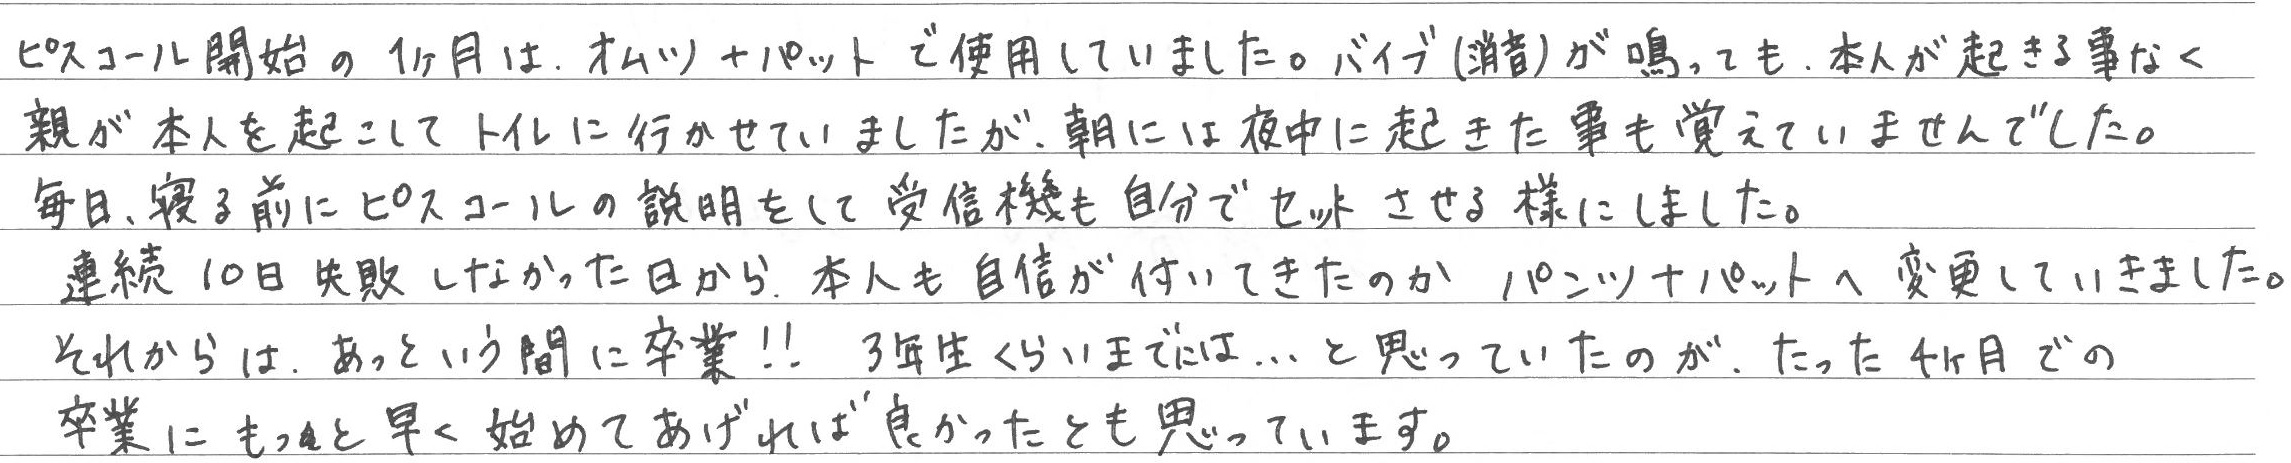 ピスコール開始の1ヶ月は、オムツ+パットで使用していました。バイブ(消音)が鳴っても、本人が起きる事なく
親が本人を起こしてトイレに行かせていましたが、朝には夜中に起きた事も覚えていませんでした。
毎日、寝る前にピスコールの説明をして受信機も自分でセットさせる様にしました。
連続10日失敗しなかった日から、本人も自信が付いてきたのか パンツ+パットへ変更していきました。
それからは、あっという間に卒業!! 3年生くらいまでには...と思っていたのが、たった4ヶ月での
卒業にもっと早く始めてあげれば良かったとも思っています。